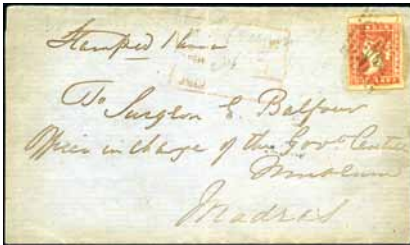 Stamped 1 Anna
To Surgeon E. Balfour
Officer in charge of the Govt Central
Museum
Madras